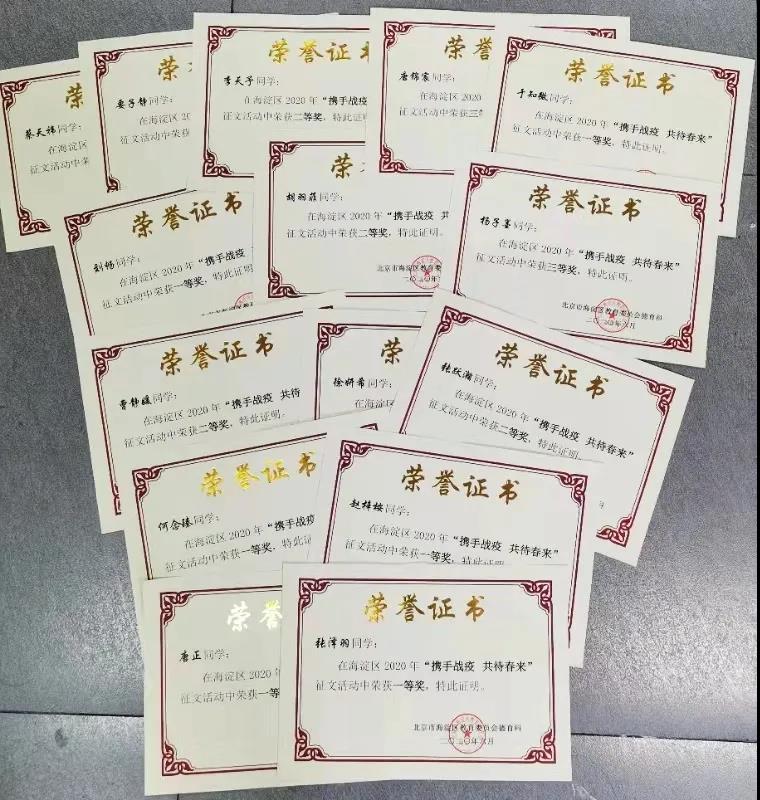 荣
蔡天禧同学：
在海淀区
征文活动中荣
荣
娄子静同学：
在海淀区20
征文活动中荣获
荣誉证书
李天予同学：
在海淀区 2020 年“携手战疫
征文活动中荣获二等奖，特此证
荣誉
唐锦宸同学：
在海淀区 20
征文活动中荣获三等
荣誉证书
于知微同学：
在海淀区 2020 年“携手战疫 共待春来”
征文活动中荣获一等奖，特此证明。
荣誉证书
刘畅同学：
在海淀区 2020 年“携手战疫
征文活动中荣获一等奖，特此证明
荣誉
胡羽菲同学：
在海淀区 2020 年“携手战疫 共
征文活动中荣获二等奖，特此证明。
北京市海淀区教育委
二〇二〇年
荣誉证书
杨子墨同学：
在海淀区 2020 年“携手战疫 共待春来”
征文活动中荣获三等奖，特此证明。
北京市海淀区教育委员会德育科
二〇二〇年六月
荣誉证书
曹静媛同学：
在海淀区 2020 年“携手战疫 共待
征文活动中荣获二等奖，特此证明。
荣誉
徐妍希同学：
在海淀区
荣誉证书
张跃瀚同学：
在海淀区 2020 年“携手战疫 共待春来”
征文活动中荣获二等奖，特此证明。
荣誉证书
何念臻同学：
在海淀区 2020 年“携手战疫
征文活动中荣获一等奖，特此证
荣誉证书
赵梓桉同学：
在海淀区 2020 年“携手战疫 共待春来”
征文活动中荣获一等奖，特此证明。
荣誉
唐正同学：
在海淀区 2020 年
征文活动中荣获一等
荣誉证书
张泽羽同学：
在海淀区 2020 年“携手战疫 共待春来”
征文活动中荣获一等奖，特此证明。
北京市海淀区教育委员会德育科
二〇二〇年六月